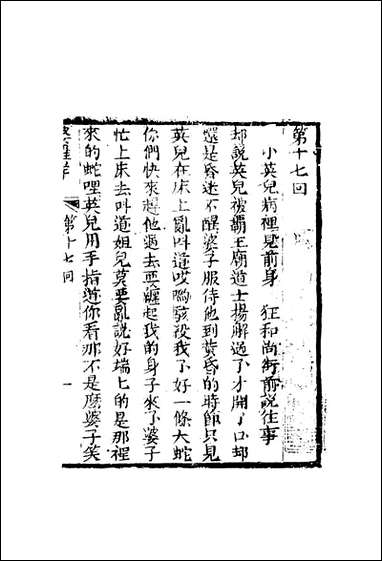 第十七回
小英兒病裡見前身　狂和尚街前說往事
却說英兒被霸王廟道士揚解過了才開了口却
還是昏迷不醒婆子服侍他到黃昏的時節只見
英兒在床上亂叫道哎喲駭殺我了好一條大蛇
你們快來趕他過去要纏起我的身子來了婆子
忙上床去叫道姐兒莫要亂說好端上的是那裡
來的蛇哩英兒用手指道你看那不是麽婆子笑
第十七回
一